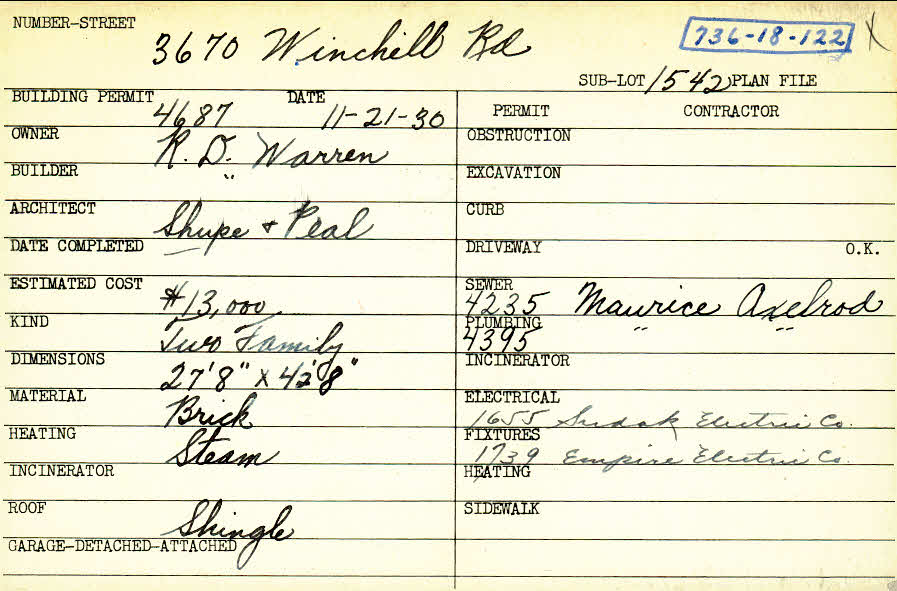 NUMBER-STREET
3670 Winchell Rd
736-18-122 X
SUB-LOT 1542 PLAN FILE
BUILDING PERMIT 4687 DATE 11-21-30
OWNER R. D. Warren
BUILDER "
ARCHITECT Shupe & Peal
DATE COMPLETED —
ESTIMATED COST $13,000
KIND Two Family
DIMENSIONS 27'8" X 42'8"
MATERIAL Brick
HEATING Steam
INCINERATOR
ROOF Shingle
GARAGE-DETACHED-ATTACHED
PERMIT CONTRACTOR
OBSTRUCTION
EXCAVATION
CURB
DRIVEWAY O.K.
SEWER 4235 Maurice Axelrod
PLUMBING 4395 " "
INCINERATOR
ELECTRICAL
1655 Electric Co.
FIXTURES
1739 Empire Electric Co.
HEATING
SIDEWALK